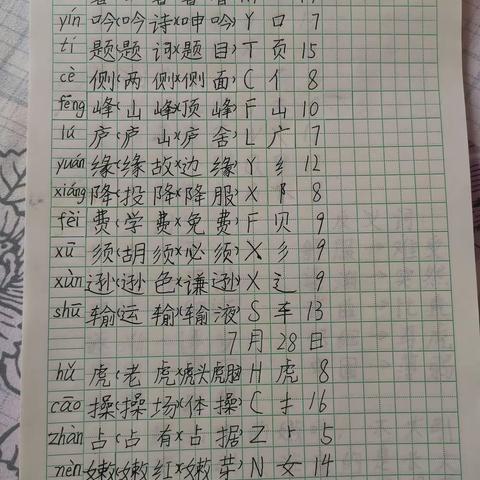 yín 吟(吟诗)(呻吟) Y 口 7
tí 题(题词)(题目) T 页 15
cè 侧(两侧)(侧面) C 亻 8
fēng 峰(山峰)(顶峰) F 山 10
lú 庐(庐山)(庐舍) L 广 7
yuán 缘(缘故)(边缘) Y 纟 12
xiáng 降(投降)(降服) X 阝 8
fèi 费(学费)(免费) F 贝 9
xū 须(胡须)(必须) X 彡 9
xùn 逊(逊色)(谦逊) X 辶 9
shū 输(运输)(输液) S 车 13
7月28日
hǔ 虎(老虎)(虎头虎脑) H 虎 8
cāo 操(操场)(体操) C 扌 16
zhàn 占(占有)(占据) Z 卜 5
nèn 嫩(嫩红)(嫩芽) N 女 14